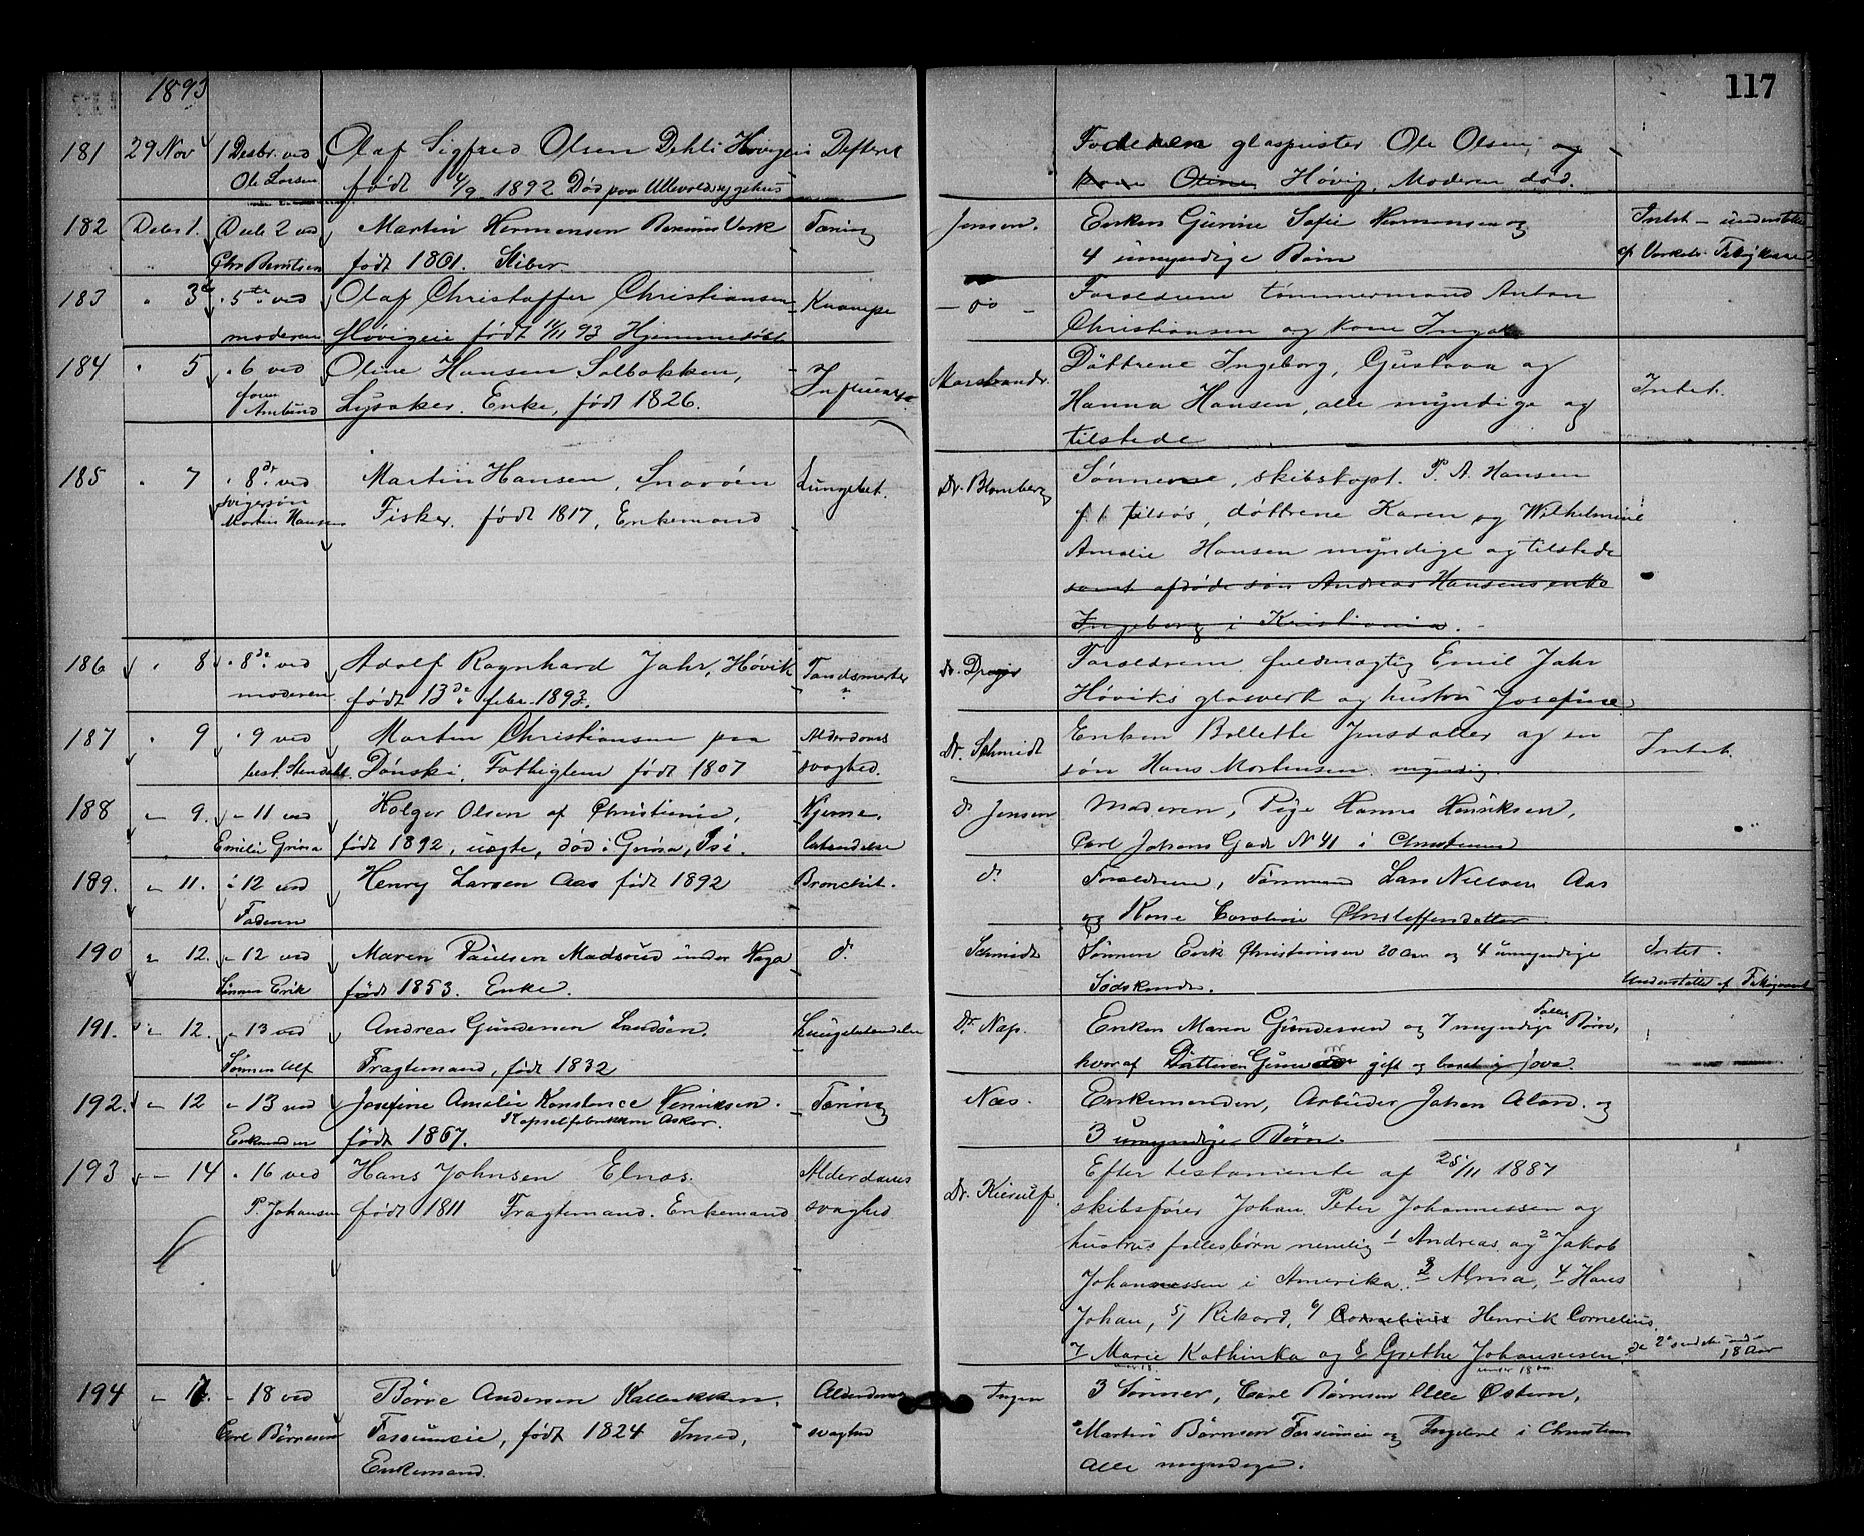 1893
117
181 29 Nov 1 Desbr. ved Olaf Sigfred Olsen Dehli Høvigeie Defterit Faderen glaspuster Ole Olsen, og
Ole Larsen født 4/9 1892 Død paa Ullevold sygehus kone Oline Høvig, Moderen død.
182 Debr 1. Debr 2 ved Martin Hermensen Bærums Værk Tæring Jensen. Enken Gurine Sofie Hermensen og Intet - understøttet
Chr Berntsen født 1861. Stiber 4 umyndige Børn af Værkets Fatigkasse
183 " 3de " 5te ved Olaf Christoffer Christiansen Krampe - do - Forældrene tømmermand Anton
moderen Høvigeie født 11 93 Hjemmedøbt Christiansen og kone Inga
184 " 5 " 6 ved Oline Hansen Solbakken, Influenza. Marstrandr. Døttrene Ingeborg, Gustava og Intet.
Amund Lysaker. Enke, født 1826. Hanna Hansen, alle myndige og
tilstede
185 " 7 " 8de ved Martin Hansen, Snarøen Lungebet. Dr. Blomberg Sønnerne, skibskapt. P. A. Hansen
svigersøn
Martin Hansen Fisker. født 1817, Enkemand f. t. tilsøs, døttrene Karen og Wilhelmine
Amalie Hansen myndige og tilstede
samt afdøde søn Andreas Hansens enke
Ingeborg i Kristiania.
186 " 8 " 8de ved Adolf Ragnhard Jahr, Høvik Tandsmerter dr. Forældrene fuldmægtig Emil Jahr
moderen født 13de febr. 1893. Høviks glasværk og hustru Josefine
187 " 9 " 9 ved Martin Christiansen paa Alderdoms Dr. Schmidt Enken Bollette Jensdatter og en Intet.
best. Stendahl. Dønski, Fattiglem født 1807 svaghed. søn Hans Mortensen myndig.
188 " 9. " 11 ved Holger Olsen af Christiania, Hjerne. dr Jensen Moderen, Pige Hanna Henriksen,
Emilie Grina født 1892, uægte, død i Grina, Isi. betændelse Carl Johans Gade N 41 i Christiania
189. " 11. " 12 ved Henry Larsen Aas født 1892 Bronchit. do Forældrene, Tømmermand Lars Nielsen Aas
Faderen og Kone Caroline Christoffersdatter
190 " 12. " 12 ved Maren Paulsen Madsrud under Haga do Schmidt Sønnen Erik Christiansen 20 Aar og 4 umyndige Intet.
Sønnen Erik født 1853. Enke. Sødskende. Understøttet af Fatigvæsenet
191. " 12. " 13 ved Andreas Gundersen Sandøen. Lungebetændelse Dr. Næs. Enken Maren Gundersen og 7 myndige Fælles Børn,
Sønnen Alf Fragtemand, født 1832 hvoraf Datteren gift og bosat i Java.
192. " 12 " 13 ved Josefine Amalie Konstance Henriksen. Tæring Næs. Enkemanden, Arbeider Johan og
Enkemanden født 1867. Kapselfabrikken Asker. 3 umyndige Børn.
193 " 14 " 16 ved Hans Johnsen Elnæs. Alderdoms Dr. Kierulf. Efter testamente af 25/11 1887
P. Johansen født 1811 Fragtemand. Enkemand svaghed skibsfører Johan Peter Johannessen og
hustrus fællesbørn nemlig 1 Andreas og 2 Jakob
Johannessen i Amerika. 3 Alma, 4 Hans
Johan, 5/ Rikard, 6/ Cornelius Henrik Cornelius,
7 Marie Kathinka og 8/ Grethe Johannesen. de 2 sidste under 18 Aar
under 18 aar
194 " 17. " 18 ved Børre Andersen Kallerækken. Alderdoms Ingen 3 Sønner, Carl Børresen Ulle Østern,
Carl Børresen Fossumeie, født 1824 Smed, svaghed Martin Børresen Fossumeie og Ingebret i Christiania
Enkemand. alle myndige.